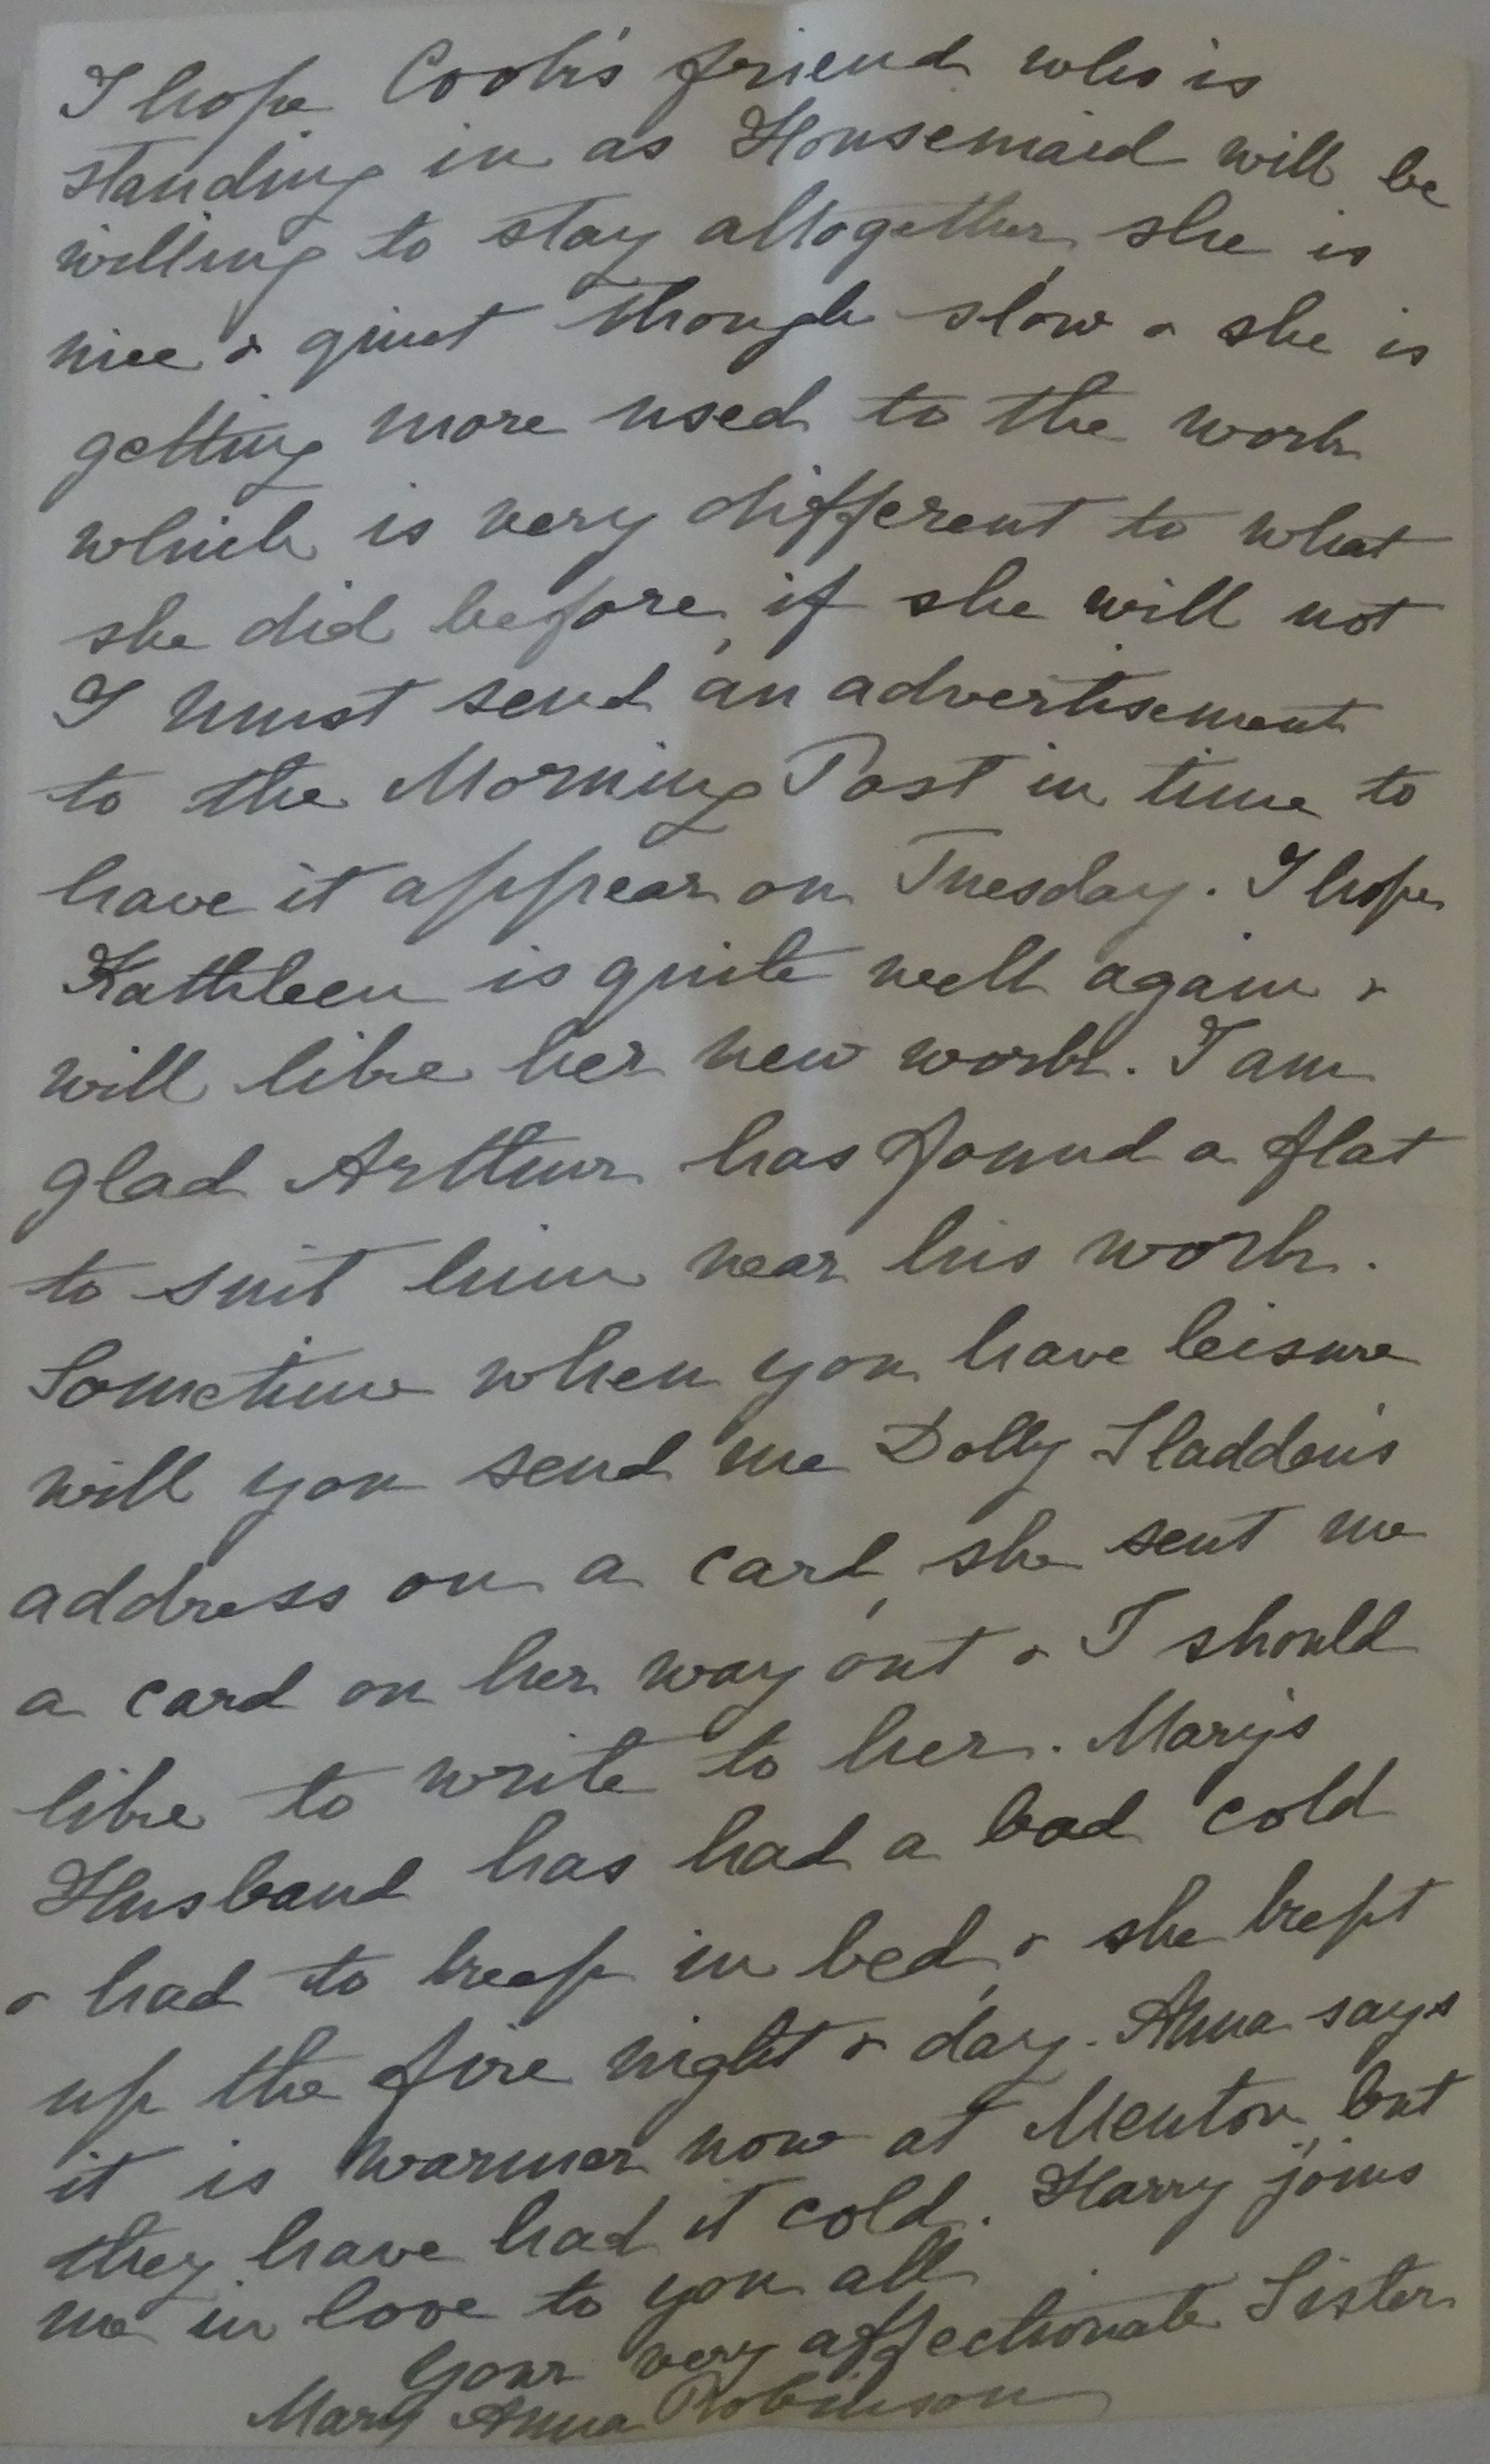 I hope Cook's friend who is
standing in as Housemaid will be
willing to stay altogether, she is
nice & quiet though slow & she is
getting more used to the work
which is very different to what
she did before, if she will not
I must send an advertisement
to the Morning Post in time to
have it appear on Tuesday. I hope
Kathleen is quite well again &
will like her new work. I am
glad Arthur has found a flat
to suit him near his work.
Sometime when you have leisure
will you send me Dolly Sladden's
address on a card, she sent me
a card on her way out & I should
like to write to her. Mary's
Husband has had a bad cold
& had to keep in bed, & she kept
up the fire night & day. Anna says
it is warmer now at Menton, but
they have had it cold. Harry joins
me in love to you all
Your very affectionate Sister
Mary Anna Robinson